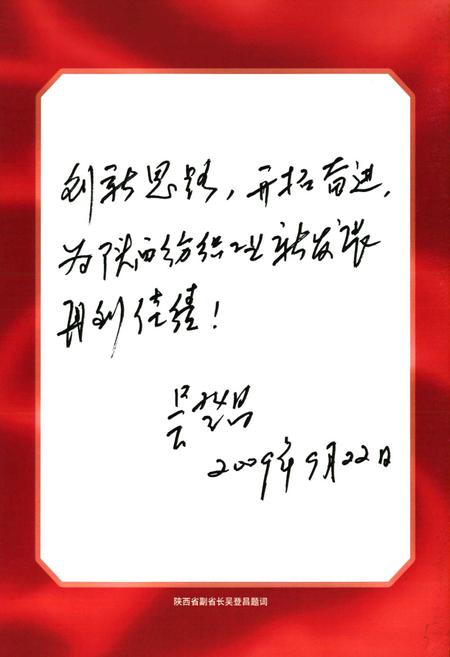 创新思路，开拓奋进，
为陕西纺织工业新发展
再创佳绩！
吴登昌
2009年9月22日
陕西省副省长吴登昌题词